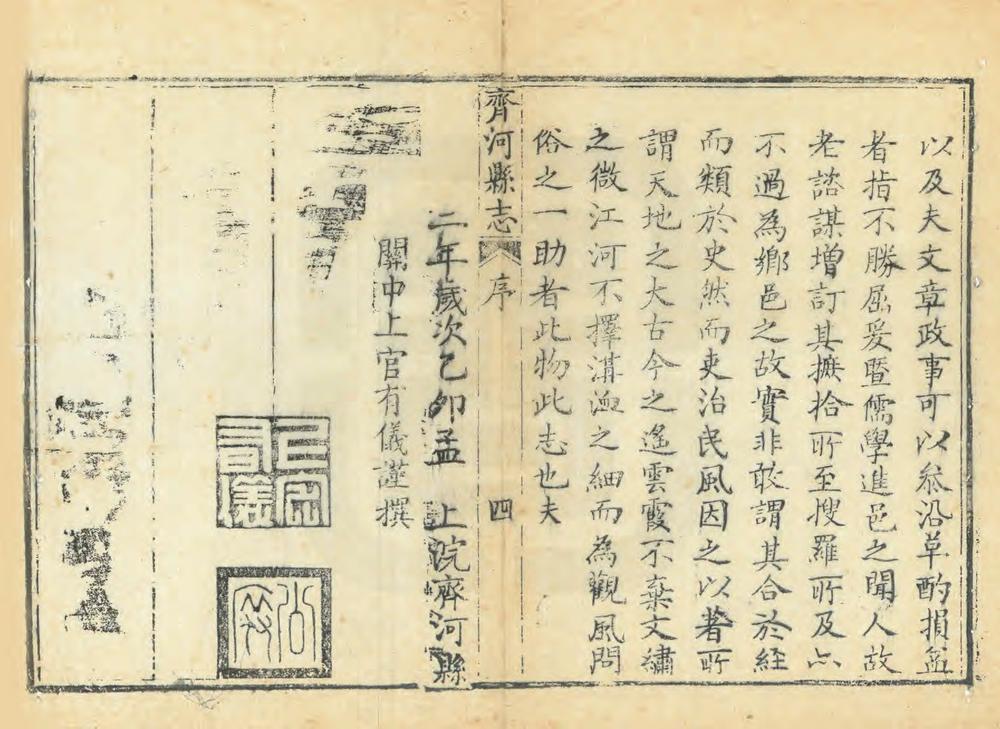 以及夫文章政事可以叅沿革酌損益
者指不勝屈爰暨儒學進邑之聞人故
老諮謀增訂其摭拾所至搜羅所及亦
不過為鄉邑之故實非敢謂其合於經
而類於史然而吏治民風因之以著所
謂天地之大古今之遙雲霞不棄文繡
之微江河不擇溝洫之細而為觀風問
俗之一助者此物此志也夫
齊河縣志
序
四
二年歲次乙卯孟
上浣齊河縣
關中上官有儀謹撰
上官有儀